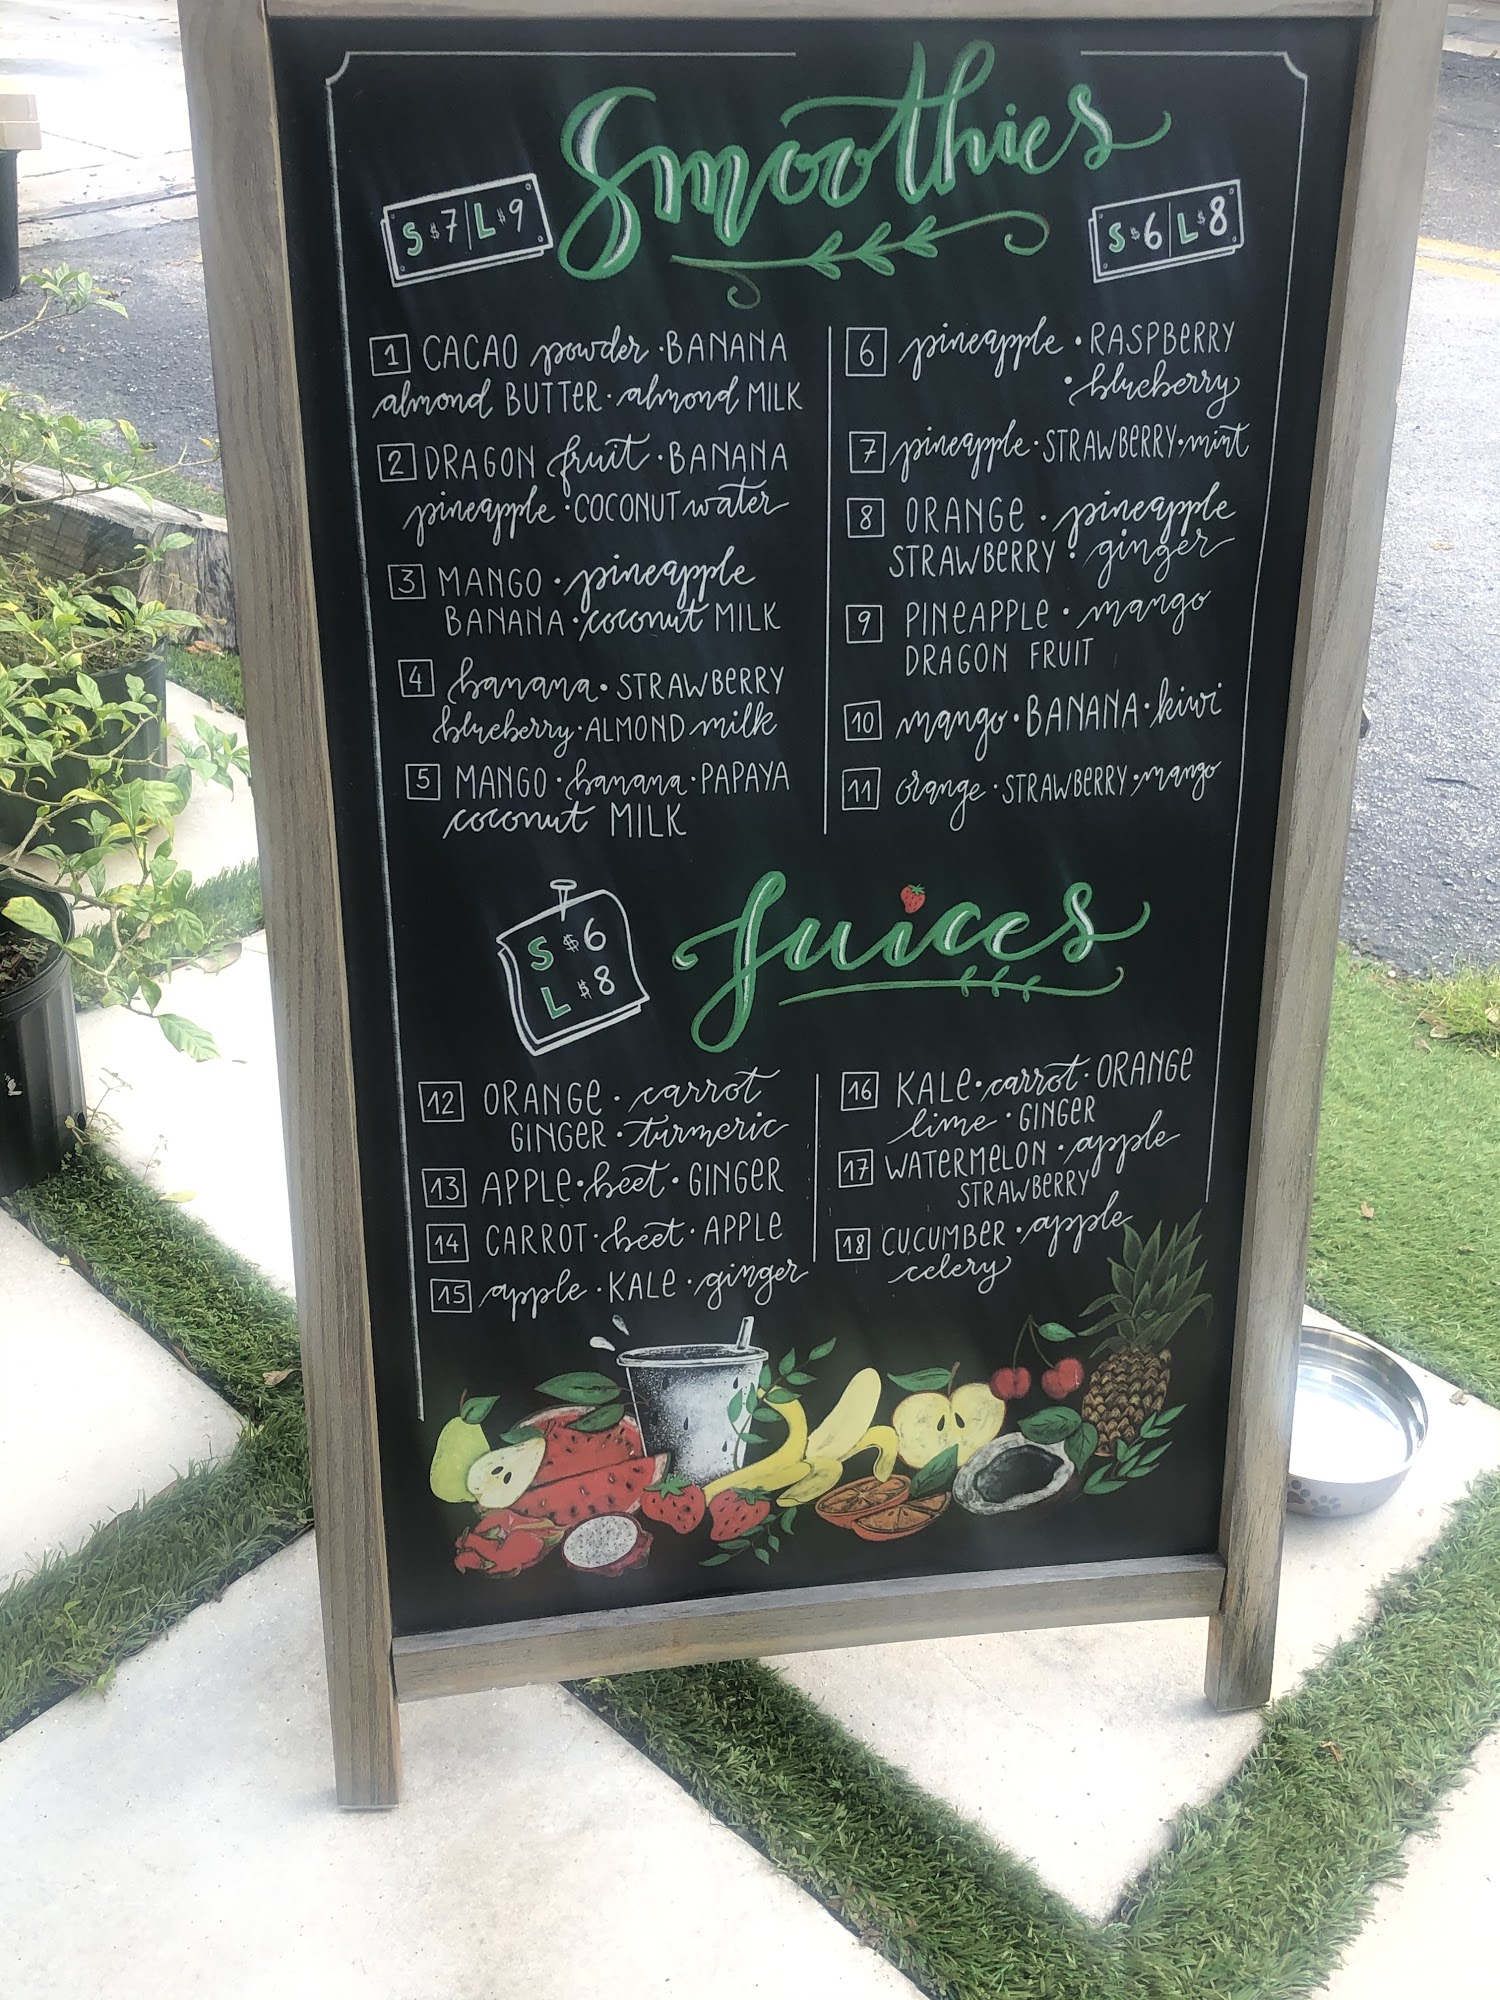 Smoothies
S $7 | L $9
S $6 | L $8
1 CACAO powder · BANANA
almond BUTTER · almond MILK
2 DRAGON fruit · BANANA
pineapple · COCONUT water
3 MANGO · pineapple
BANANA · coconut MILK
4 banana · STRAWBERRY
blueberry · ALMOND milk
5 MANGO · banana · PAPAYA
coconut MILK
6 pineapple · RASPBERRY
· blueberry
7 pineapple · STRAWBERRY · mint
8 ORANGE · pineapple
STRAWBERRY · ginger
9 PINEAPPLE · mango
DRAGON FRUIT
10 mango · BANANA · kiwi
11 orange · STRAWBERRY · mango
Juices
S $6
L $8
12 ORANGE · carrot
GINGER · turmeric
13 APPLE · beet · GINGER
14 CARROT · beet · APPLE
15 apple · KALE · ginger
16 KALE · carrot · ORANGE
lime · GINGER
17 WATERMELON · apple
STRAWBERRY
18 CUCUMBER · apple
celery